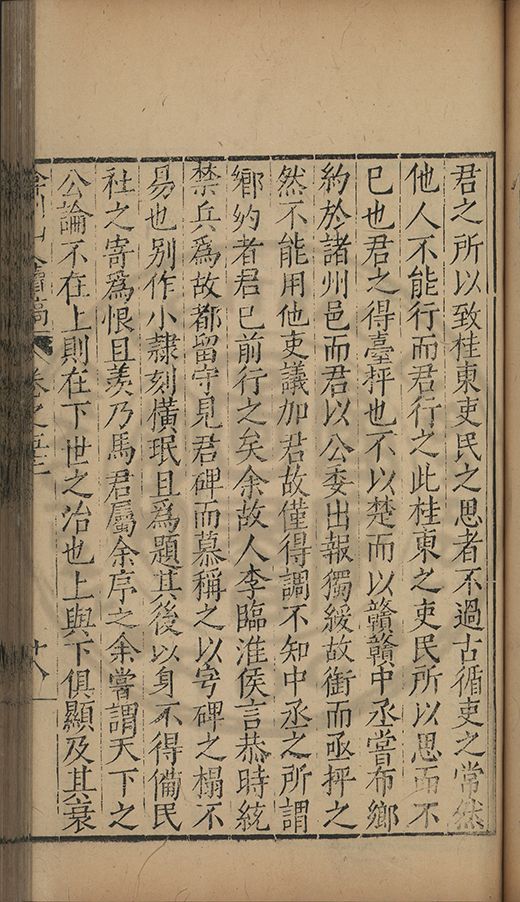 君之所以致桂東吏民之思者不過古循吏之常然
他人不能行而君行之此桂東之吏民所以思而不
已也君之得臺抨也不以楚而以贛贛中丞嘗布鄉
約於諸州邑而君以公委出報獨緩故銜而亟抨之
然不能用他吏議加君故僅得調不知中丞之所謂
鄉約者君已前行之矣余故人李臨淮侯言恭時統
禁兵爲故都留守見君碑而慕稱之以穹碑之榻不
易也别作小隷刻橫珉且爲題其後以身不得備民
社之寄爲恨且羨乃馬君屬余序之余嘗謂天下之
公論不在上則在下世之治也上與下俱顯及其衰
續稿 卷之五十三 十八